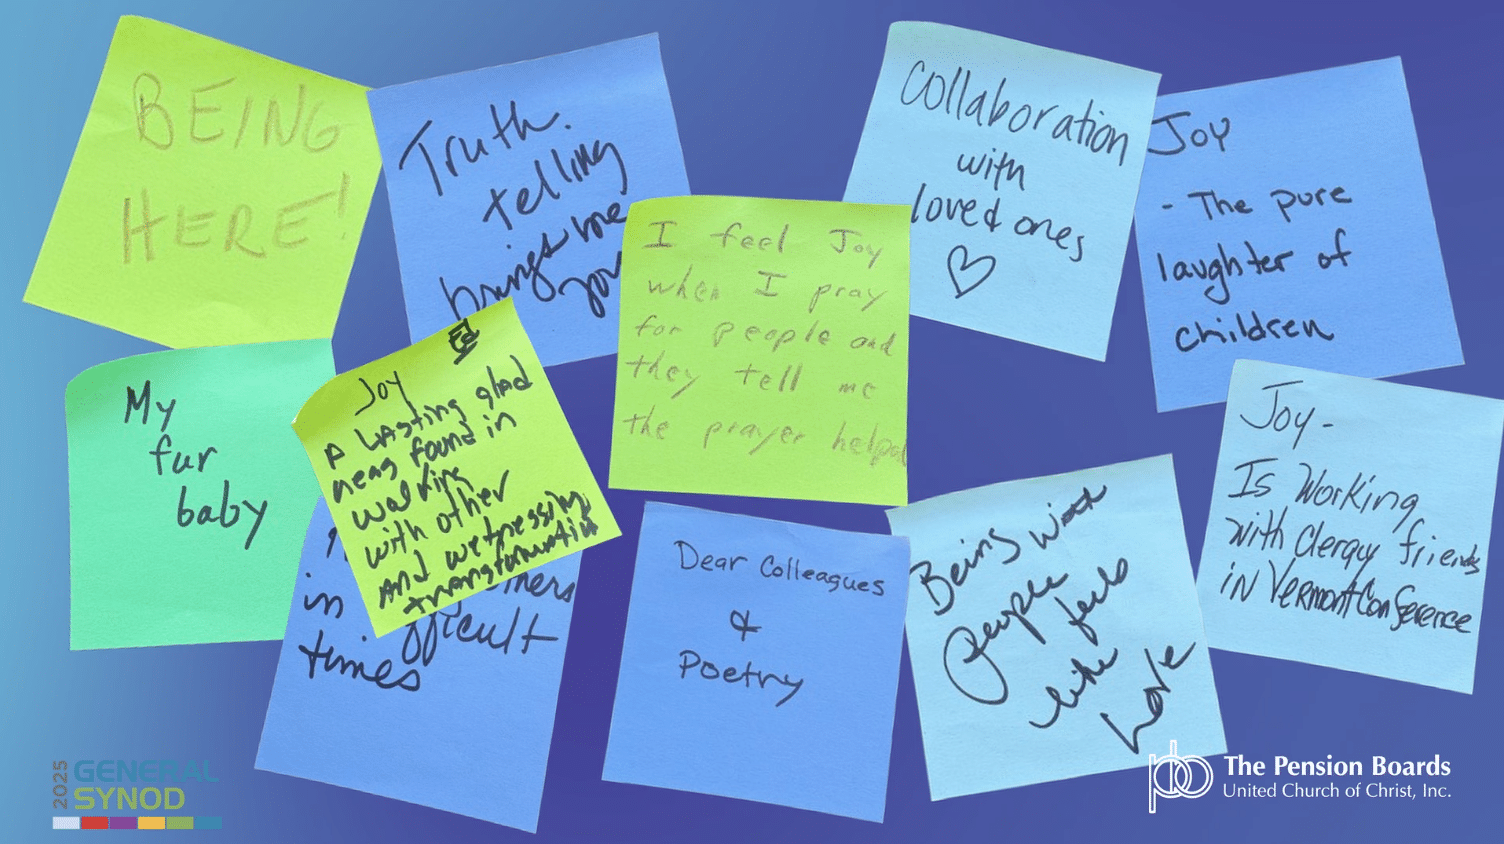 BEING
HERE!
Truth.
telling
brings me
joy
Collaboration
with
loved ones
Joy
- The pure
laughter of
children
I feel Joy
when I pray
for people and
they tell me
the prayer helped
My
fur
baby
Joy
A lasting glad
ness found in
walking
with other
And witnessing
transformation
in others
difficult
times
Dear Colleagues
&
Poetry
Being with
people
feels
like
Love
Joy-
Is Working
with Clergy friends
in Vermont Conference
2025
GENERAL
SYNOD
pb
The Pension Boards
United Church of Christ, Inc.